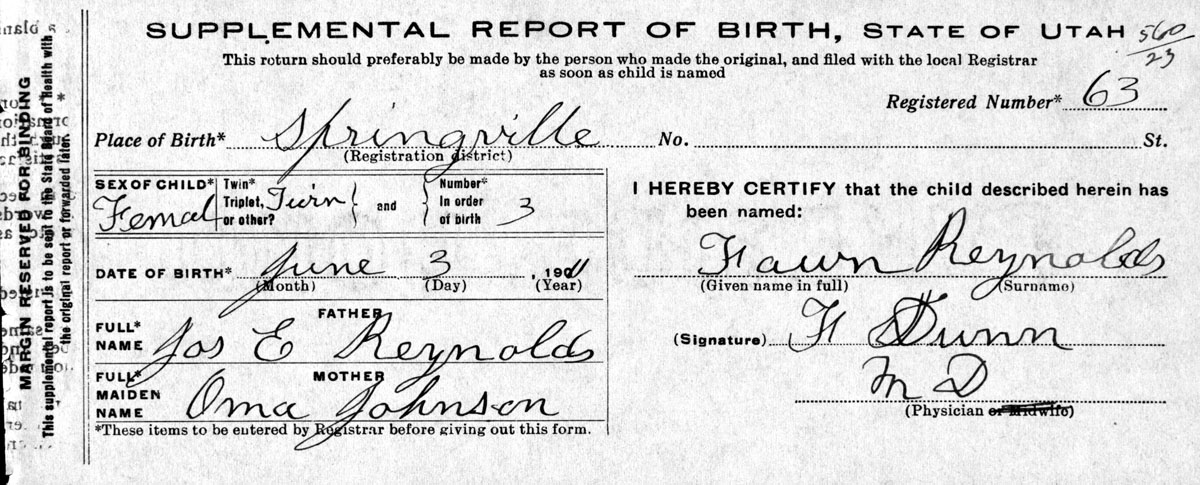 SUPPLEMENTAL REPORT OF BIRTH, STATE OF UTAH
560
23
This return should preferably be made by the person who made the original, and filed with the local Registrar
as soon as child is named
Registered Number* 63
Place of Birth* Springville No. St.
(Registration district)
SEX OF CHILD* Femal
Twin* Triplet, or other? Twin
and
Number* In order of birth 3
DATE OF BIRTH* June 3, 1911
(Month) (Day) (Year)
FATHER
FULL* NAME Jos E Reynolds
MOTHER
FULL* MAIDEN NAME Oma Johnson
*These items to be entered by Registrar before giving out this form.
I HEREBY CERTIFY that the child described herein has
been named:
Fawn Reynolds
(Given name in full) (Surname)
(Signature) F Dunn
M D
(Physician or Midwife)
MARGIN RESERVED FOR BINDING
This supplemental report is to be sent to the State Board of Health with
the original report or forwarded later.